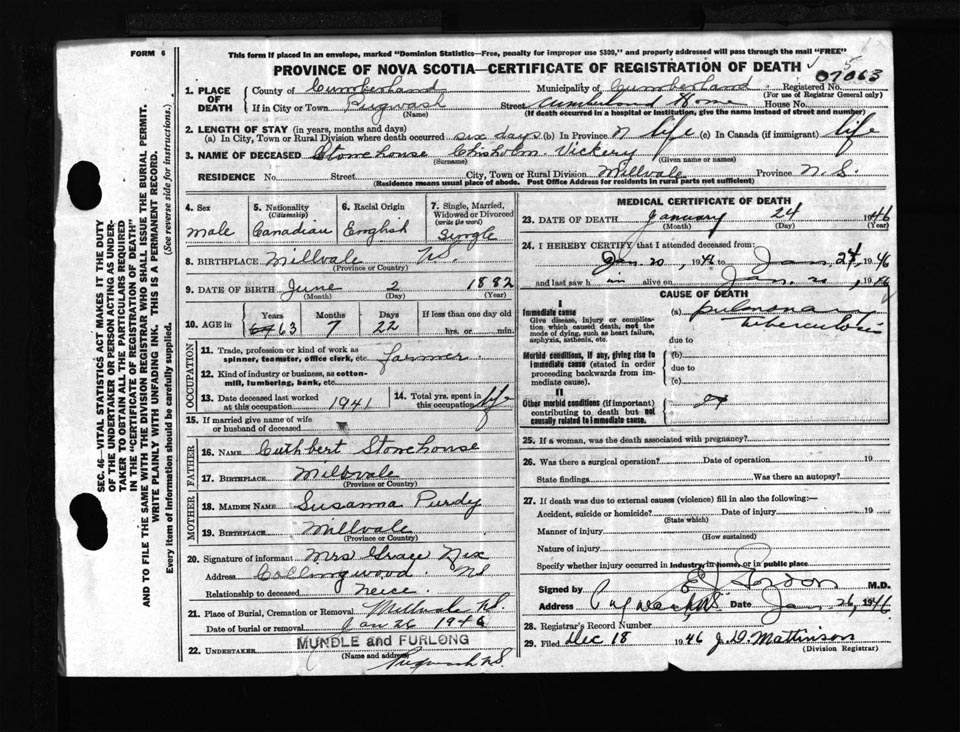 FORM 6
This form if placed in an envelope, marked "Dominion Statistics—Free, penalty for improper use $300," and properly addressed will pass through the mail "FREE"
PROVINCE OF NOVA SCOTIA—CERTIFICATE OF REGISTRATION OF DEATH
07063
1. PLACE OF DEATH
County of Cumberland Municipality of Cumberland Registered No.
(For use of Registrar General only)
If in City or Town Pugwash Street Cumberland Home House No.
(Name) (If death occurred in a hospital or institution, give the name instead of street and number)
2. LENGTH OF STAY (in years, months and days)
(a) In City, Town or Rural Division where death occurred six days (b) In Province life (c) In Canada (if immigrant) life
3. NAME OF DECEASED Stonehouse Chisholm Vickery
(Surname) (Given name or names)
RESIDENCE No. Street City, Town or Rural Division Millvale Province N.S.
(Residence means usual place of abode. Post Office Address for residents in rural parts not sufficient)
4. Sex
male
5. Nationality (Citizenship)
Canadian
6. Racial Origin
English
7. Single, Married, Widowed or Divorced (write the word)
Single
8. BIRTHPLACE Millvale N.S.
(Province or Country)
9. DATE OF BIRTH June 2 1882
(Month) (Day) (Year)
10. AGE in
Years Months Days If less than one day old
63 7 22 hrs. or min.
OCCUPATION
11. Trade, profession or kind of work as spinner, teamster, office clerk, etc. farmer
12. Kind of industry or business, as cotton-mill, lumbering, bank, etc.
13. Date deceased last worked at this occupation 1941
14. Total yrs. spent in this occupation life
15. If married give name of wife or husband of deceased
FATHER
16. NAME Cuthbert Stonehouse
17. BIRTHPLACE Millvale
(Province or Country)
MOTHER
18. MAIDEN NAME Susanna Purdy
19. BIRTHPLACE Millvale
(Province or Country)
20. Signature of informant Mrs Grace Nix
Address Collingwood. NS
Relationship to deceased neice
21. Place of Burial, Cremation or Removal Millvale N.S.
Date of burial or removal Jan 26 1946
22. UNDERTAKER MUNDLE and FURLONG
(Name and address)
Pugwash N.S
MEDICAL CERTIFICATE OF DEATH
23. DATE OF DEATH January 24 1946
(Month) (Day) (Year)
24. I HEREBY CERTIFY that I attended deceased from:
Jan. 20, 1946 to Jan. 24, 1946
and last saw him alive on Jan. 20, 1946
CAUSE OF DEATH
I
Immediate cause
Give disease, injury or complication which caused death, not the mode of dying, such as heart failure, asphyxia, asthenia, etc.
(a) pulmonary tuberculosis
due to
Morbid conditions, if any, giving rise to immediate cause (stated in order proceeding backwards from immediate cause).
(b)
due to
(c)
II
Other morbid conditions (if important) contributing to death but not causally related to immediate cause.
25. If a woman, was the death associated with pregnancy?
26. Was there a surgical operation? Date of operation 19
State findings Was there an autopsy?
27. If death was due to external causes (violence) fill in also the following:—
Accident, suicide or homicide? Date of injury 19
(State which)
Manner of injury
(How sustained)
Nature of injury
Specify whether injury occurred in industry, in home, or in public place
Signed by Gordon M.D.
Address Pugwash N.S. Date Jan 26, 1946
28. Registrar's Record Number
29. Filed Dec 18 1946 J.D. Mattinson
(Division Registrar)
SEC. 46—VITAL STATISTICS ACT MAKES IT THE DUTY
OF THE UNDERTAKER OR PERSON ACTING AS UNDERTAKER TO OBTAIN ALL THE PARTICULARS REQUIRED
IN THE "CERTIFICATE OF REGISTRATION OF DEATH"
AND TO FILE THE SAME WITH THE DIVISION REGISTRAR WHO SHALL ISSUE THE BURIAL PERMIT.
WRITE PLAINLY WITH UNFADING INK. THIS IS A PERMANENT RECORD.
Every item of information should be carefully supplied. (See reverse side for instructions.)